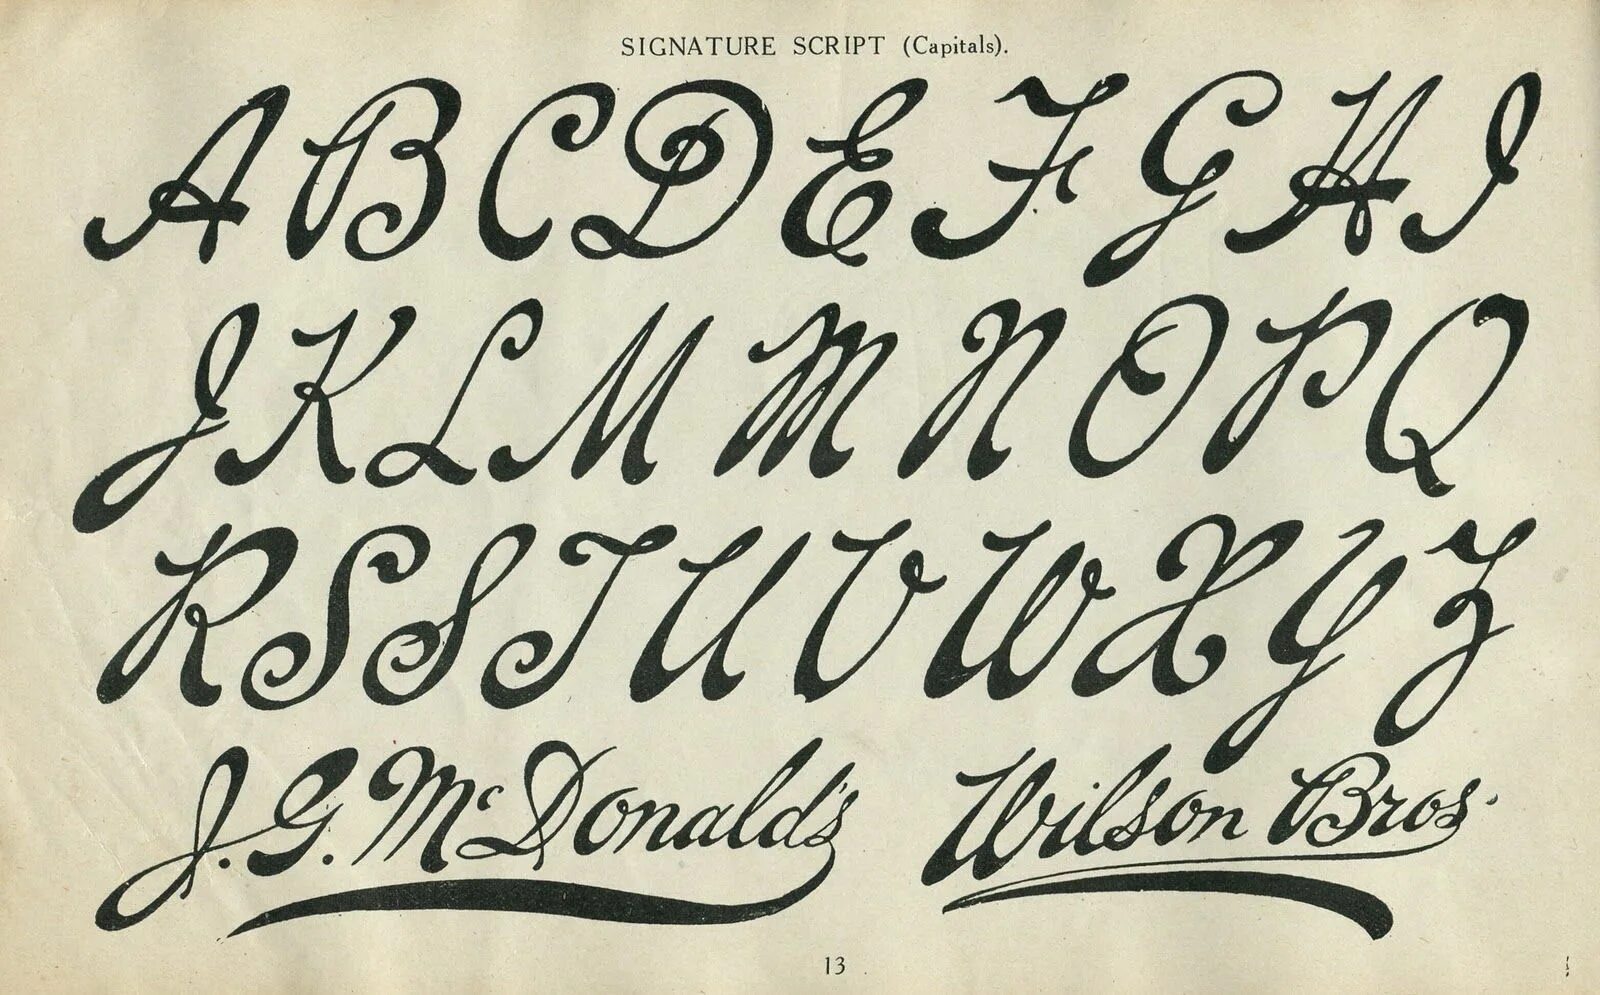 SIGNATURE SCRIPT (Capitals).
A B C D E F G H I
J K L M M N O P Q
R S S T U V W X Y Z
J. G. McDonald's Wilson Bros.
13